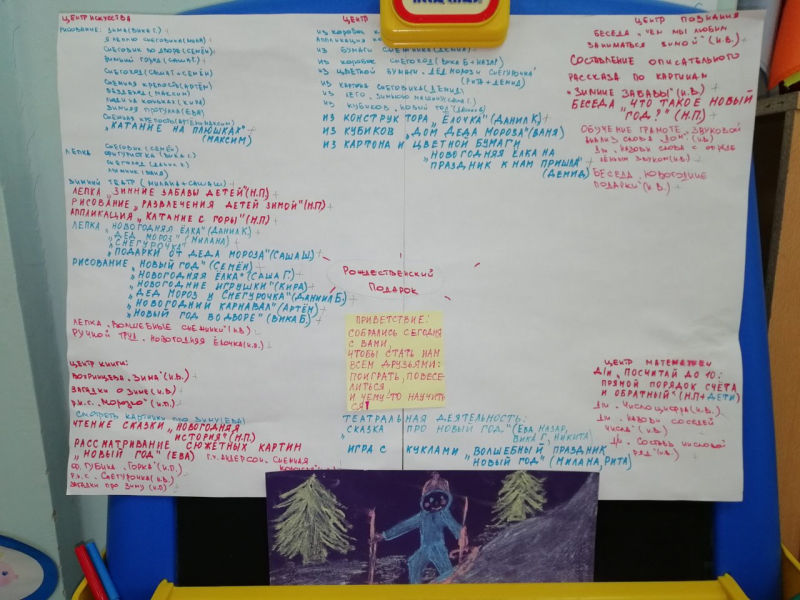 ЦЕНТР ИСКУССТВА
РИСОВАНИЕ: ЗИМА (ВИКА Г.)
Я ЛЕПЛЮ СНЕГОВИКА
СНЕГОВИК ВО ДВОРЕ (СЕМЁН)
ЗИМНИЙ ГОРОД (САША Г.)
СНЕГОХОД (САША Г + СЕМЁН)
СНЕЖНАЯ КРЕПОСТЬ (АРТЁМ)
ВЕЗДЕХОД (МАКСИМ)
ЛЮДИ НА КОНЬКАХ (КИРА)
ЗИМНЯЯ ПРОГУЛКА (ЕВА)
СНЕЖНАЯ КРЕПОСТЬ (АРТЁМ, МАКСИМ)
„КАТАНИЕ НА ПЛЮШКАХ"
(МАКСИМ)
ЛЕПКА СНЕГОВИК (СЕМЁН)
ФИГУРИСТКА (ВИКА Б.)
СНЕГОХОД (ДАНИЛ К)
(ВАНЯ)
ЗИМНИЙ ТЕАТР (МИЛАНА + САША Ш)
ЛЕПКА „ЗИМНИЕ ЗАБАВЫ ДЕТЕЙ" (Н.П)
РИСОВАНИЕ „РАЗВЛЕЧЕНИЯ ДЕТЕЙ ЗИМОЙ" (Н.П)
АППЛИКАЦИЯ „КАТАНИЕ С ГОРЫ" (Н.П)
ЛЕПКА „НОВОГОДНЯЯ ЁЛКА" (ДАНИЛ К.)
„ДЕД МОРОЗ" (МИЛАНА)
„СНЕГУРОЧКА"
„ПОДАРКИ ОТ ДЕДА МОРОЗА" (САША Ш)
РИСОВАНИЕ „НОВЫЙ ГОД" (СЕМЁН)
„НОВОГОДНЯЯ ЁЛКА" (САША Г.)
„НОВОГОДНИЕ ИГРУШКИ" (КИРА)
„ДЕД МОРОЗ И СНЕГУРОЧКА" (ДАНИИЛ Б.)
„НОВОГОДНИЙ КАРНАВАЛ" (АРТЁМ)
„НОВЫЙ ГОД ВО ДВОРЕ" (ВИКА Б.)
ЛЕПКА „ВОЛШЕБНЫЕ СНЕЖИНКИ" (И.В.)
РУЧНОЙ ТРУД „НОВОГОДНЯЯ ЁЛОЧКА"
ЦЕНТР КНИГИ:
„ЗИМА" (И.В.)
ЗАГАДКИ О ЗИМЕ (И.В.)
Р.Н.С. „МОРОЗКО" (И.В.)
СМОТРЕТЬ КАРТИНКИ ПРО ЗИМУ (ЕВА)
ЧТЕНИЕ СКАЗКИ „НОВОГОДНЯЯ
ИСТОРИЯ" (Н.П)
РАССМАТРИВАНИЕ СЮЖЕТНЫХ КАРТИН
„НОВЫЙ ГОД" (ЕВА) Г.Х. АНДЕРСОН „СНЕЖНАЯ
Ф. ГУБИНА „ГОРКА"
Р.Н.С. СНЕГУРОЧКА (И.В.)
ЗАГАДКИ ПРО ЗИМУ
ЦЕНТР
ИЗ КОРОБОК
АППЛИКАЦИЯ
ИЗ БУМАГИ СНЕЖИНКА (ДЕМИД)
ИЗ КОРОБОК СНЕГОХОД (ВИКА Б + НАЗАР)
ИЗ ЦВЕТНОЙ БУМАГИ „ДЕД МОРОЗ И СНЕГУРОЧКА"
(РИТА + ДЕМИД)
ИЗ КАРТОНА СНЕГОВИКА (ДЕМИД)
ИЗ ЛЕГО „ЗИМНЮЮ МАШИНУ" (САША Г.)
ИЗ КУБИКОВ „НОВЫЙ ГОД"
ИЗ КОНСТРУКТОРА „ЁЛОЧКА" (ДАНИЛ К)
ИЗ КУБИКОВ „ДОМ ДЕДА МОРОЗА" (ВАНЯ)
ИЗ КАРТОНА И ЦВЕТНОЙ БУМАГИ
„НОВОГОДНЯЯ ЁЛКА НА
ПРАЗДНИК К НАМ ПРИШЛА"
(ДЕМИД)
РОЖДЕСТВЕНСКИЙ
ПОДАРОК
ПРИВЕТСТВИЕ:
СОБРАЛИСЬ СЕГОДНЯ
С ВАМИ,
ЧТОБЫ СТАТЬ НАМ
ВСЕМ ДРУЗЬЯМИ:
ПОИГРАТЬ, ПОВЕСЕ-
ЛИТЬСЯ
И ЧЕМУ-ТО НАУЧИТЬ
СЯ!
ТЕАТРАЛЬНАЯ ДЕЯТЕЛЬНОСТЬ:
СКАЗКА „ПРО НОВЫЙ ГОД" (ЕВА, НАЗАР,
ВИКА Г, НИКИТА)
ИГРА С КУКЛАМИ „ВОЛШЕБНЫЙ ПРАЗДНИК
НОВЫЙ ГОД" (МИЛАНА, РИТА)
ЦЕНТР ПОЗНАНИЯ
БЕСЕДА „ЧЕМ МЫ ЛЮБИМ
ЗАНИМАТЬСЯ ЗИМОЙ" (И.В.)
СОСТАВЛЕНИЕ ОПИСАТЕЛЬНОГО
РАССКАЗА ПО КАРТИНАМ
„ЗИМНИЕ ЗАБАВЫ" (И.В.)
БЕСЕДА „ЧТО ТАКОЕ НОВЫЙ
ГОД?" (Н.П)
ОБУЧЕНИЕ ГРАМОТЕ „ЗВУКОВОЙ
АНАЛИЗ СЛОВА „ДОМ" (И.В)
Д/И „НАЗОВИ СЛОВА С ОПРЕДЕ-
ЛЁННЫМ ЗВУКОМ" (И.В)
БЕСЕДА „НОВОГОДНИЕ
ПОДАРКИ" (И.В.)
ЦЕНТР МАТЕМАТИКИ
Д/И „ПОСЧИТАЙ ДО 10:
ПРЯМОЙ ПОРЯДОК СЧЁТА
И ОБРАТНЫЙ" (Н.П + ДЕТИ)
Д/И „ЧИСЛО, ЦИФРА" (И.В.)
Д/И „НАЗОВИ СОСЕДЕЙ
ЧИСЛА" (И.В.)
Д/И „СОСТАВЬ ЧИСЛОВОЙ
РЯД" (И.В.)